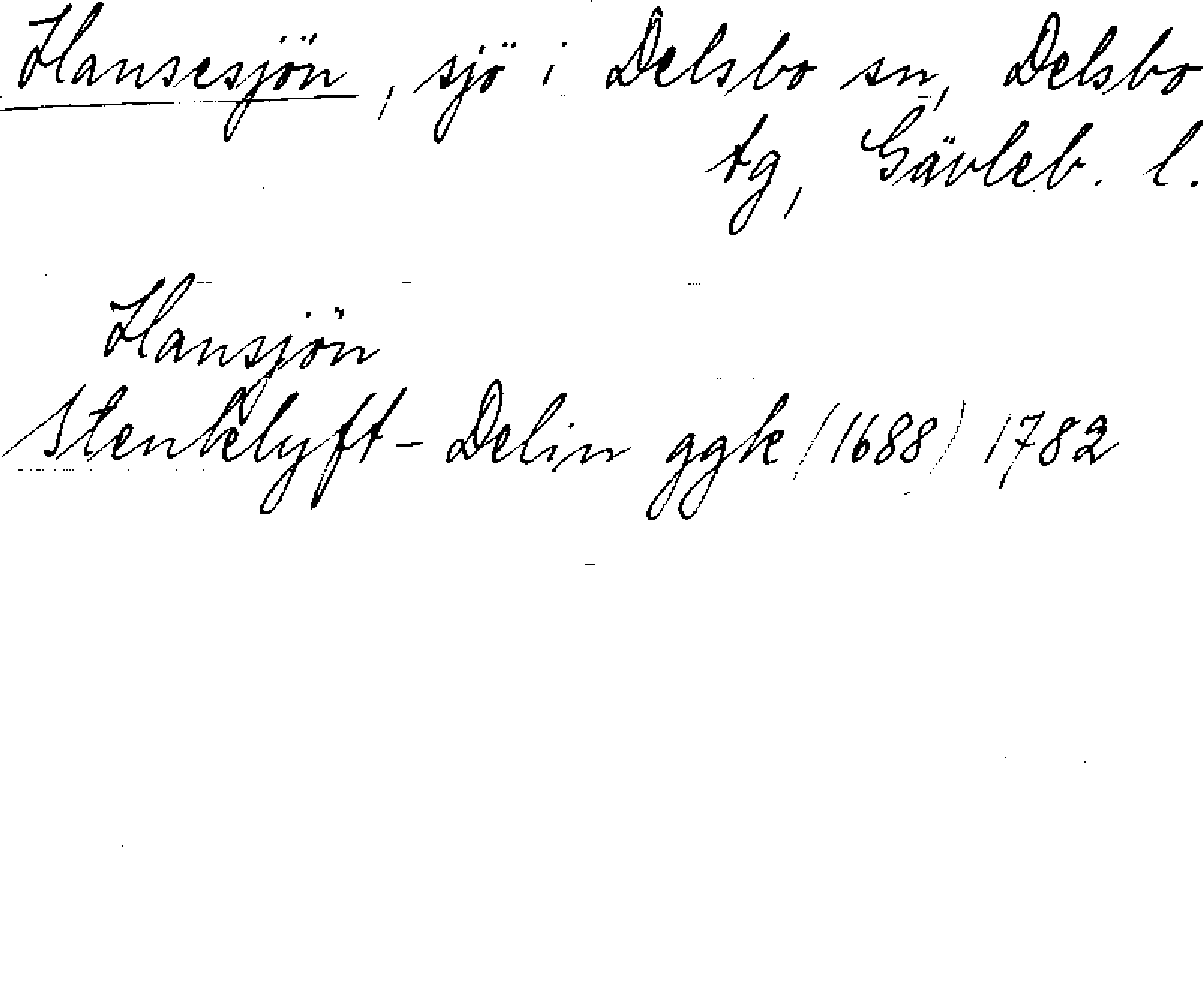 Hansesjön, sjö i Delsbo sn, Delsbo
tg, Gävleb. l.
Hansjön
Stenklyft- Delin ggk (1688) 1782